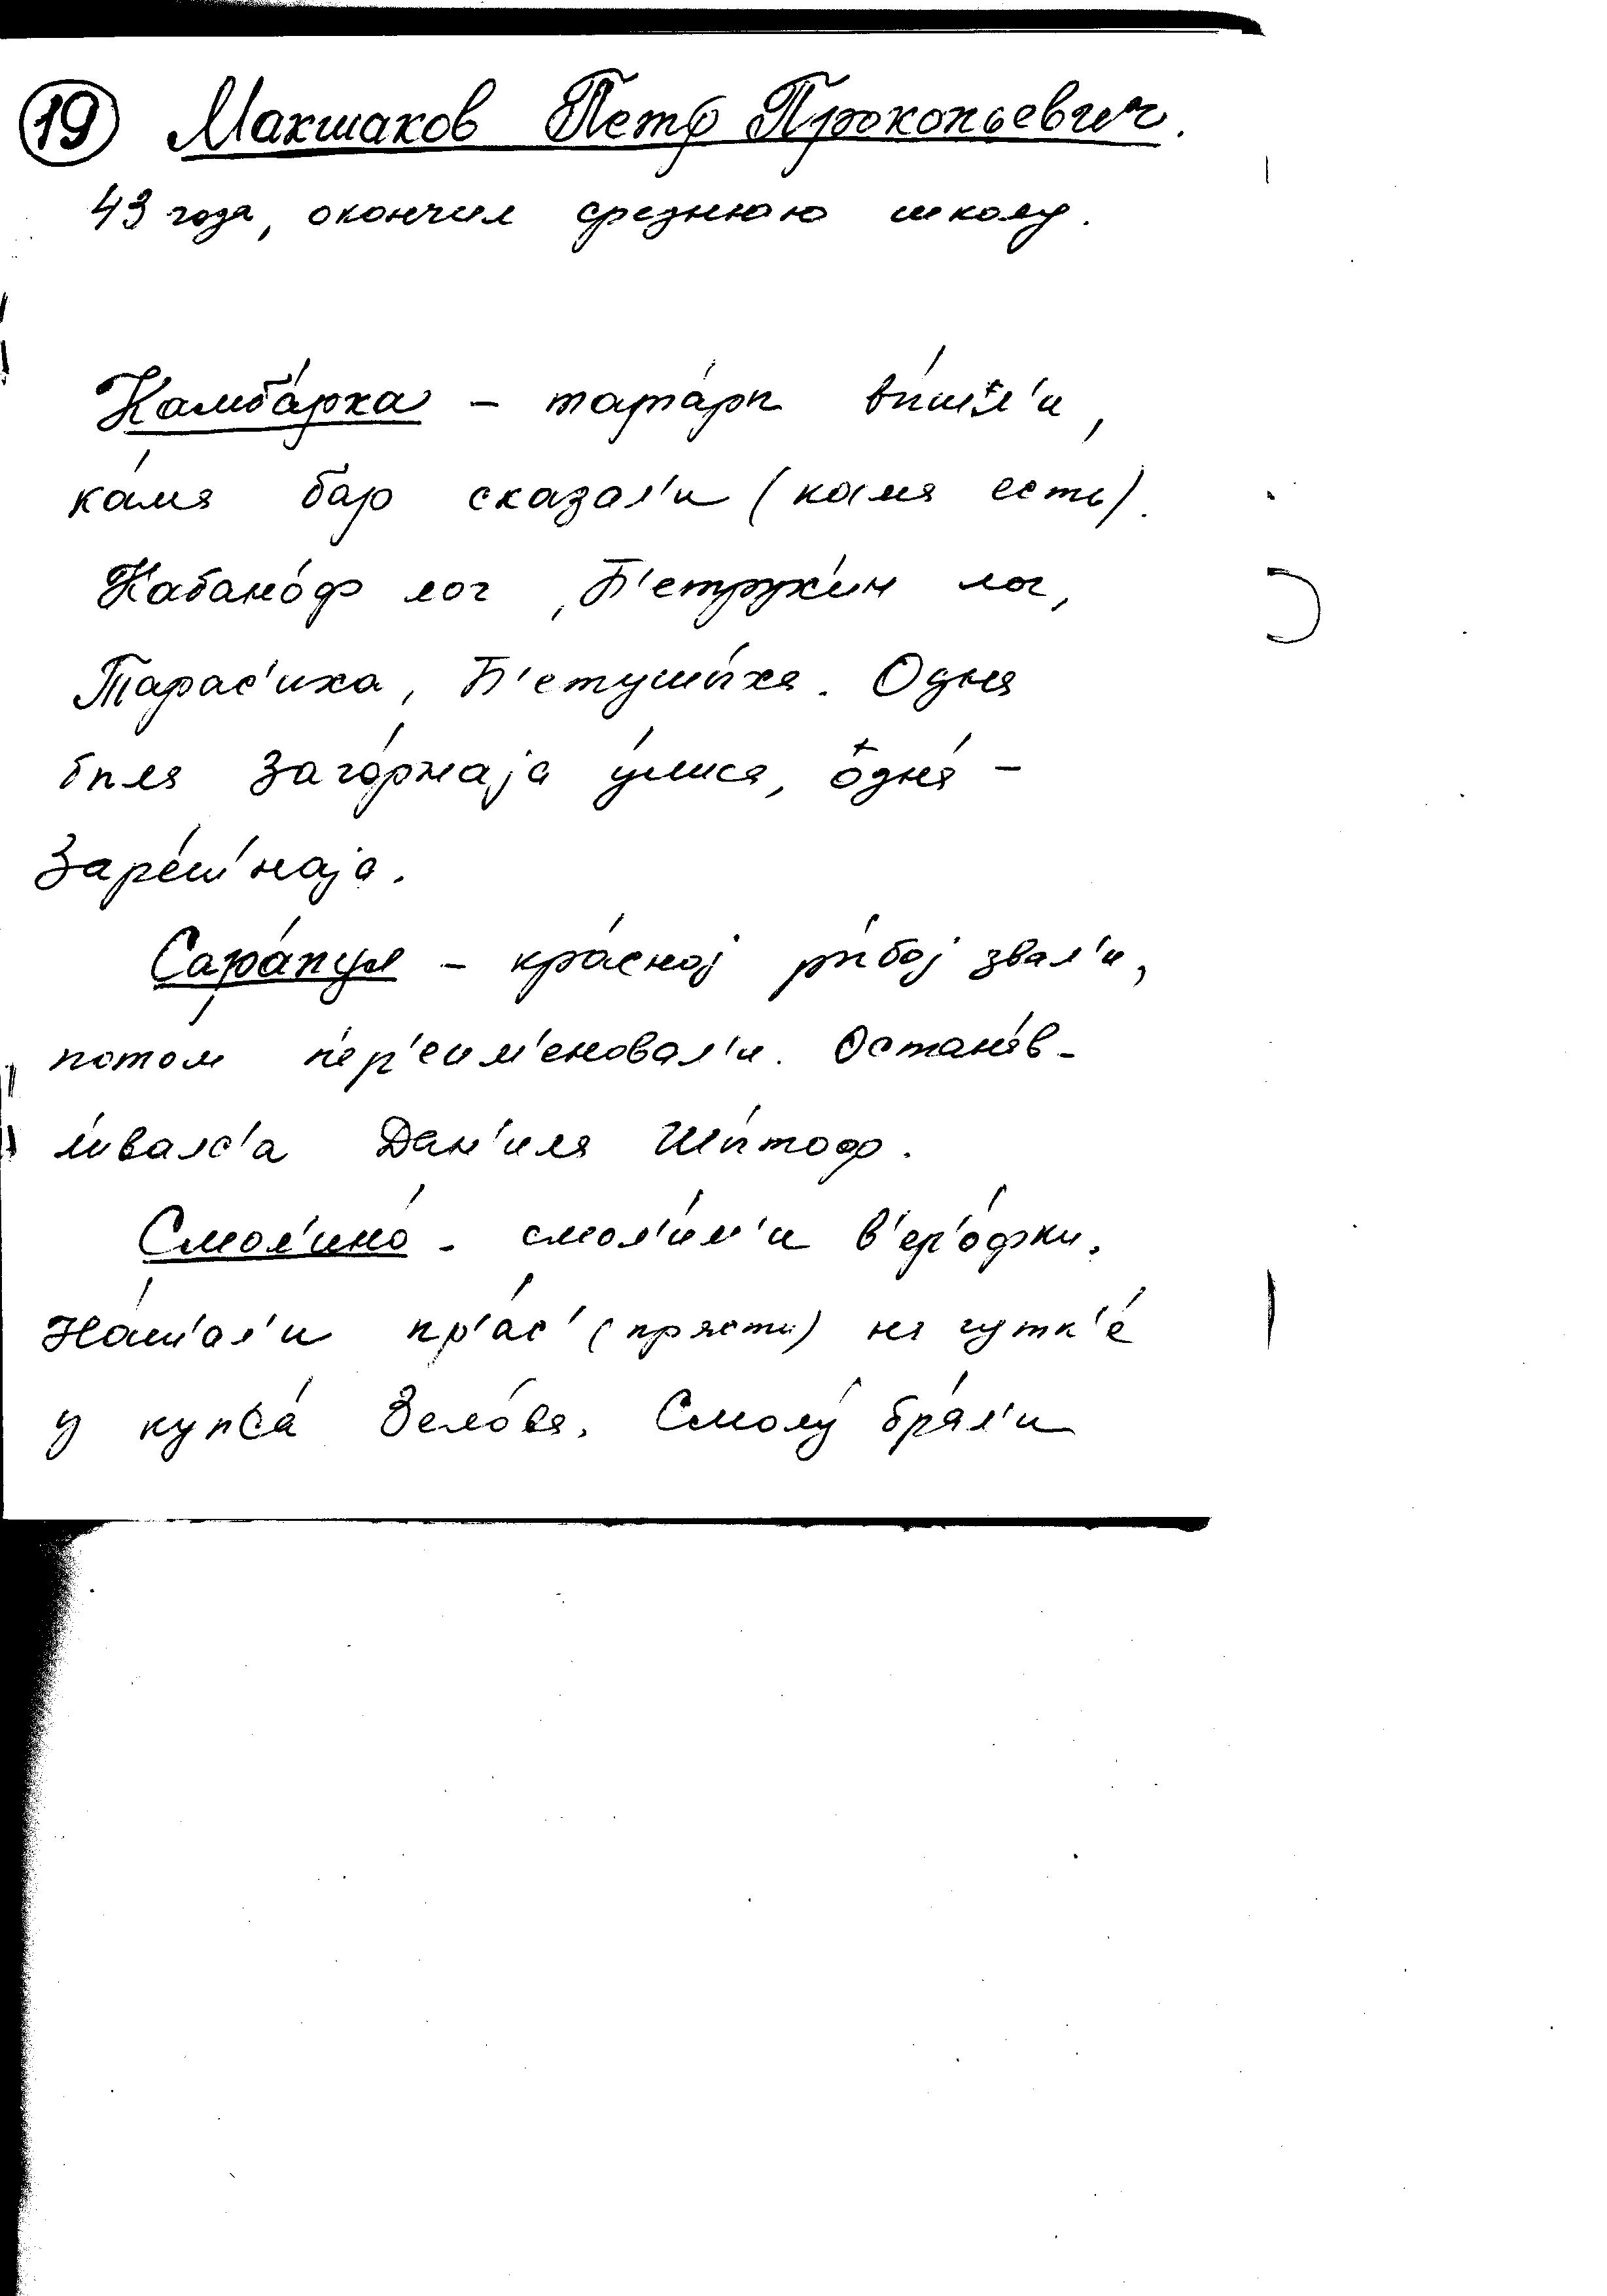 19 Макшаков Петр Прокопьевич.
43 года, окончил среднюю школу.
Камба́рка – тата́ры вы́шл'и,
ка́мя бар сказал'и (камя есть).
Кабано́ф лог, П'етру́х'ин лог,
Тарас'иха, П'етуши́хя. Одня
быля Заго́рнаjа у́лися, одня́ –
Заре́ш'наjа.
Сара́пул – кра́сноj ры́боj звал'и,
потом п'ер'еим'еновал'и. Останя́в-
л'ивалс'а Дан'иля Ши́тоф.
Смол'ино́ – смол'и́л'и в'ер'о́фки.
На́ш'ал'и пр'ас' (прясти) ня гутк'е́
у купса́ Зело́вя. Смолу́ бря́л'и